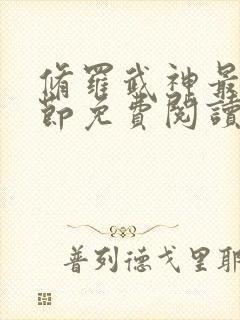 脩羅武神最
節免費閱讀
普列德戈里耶